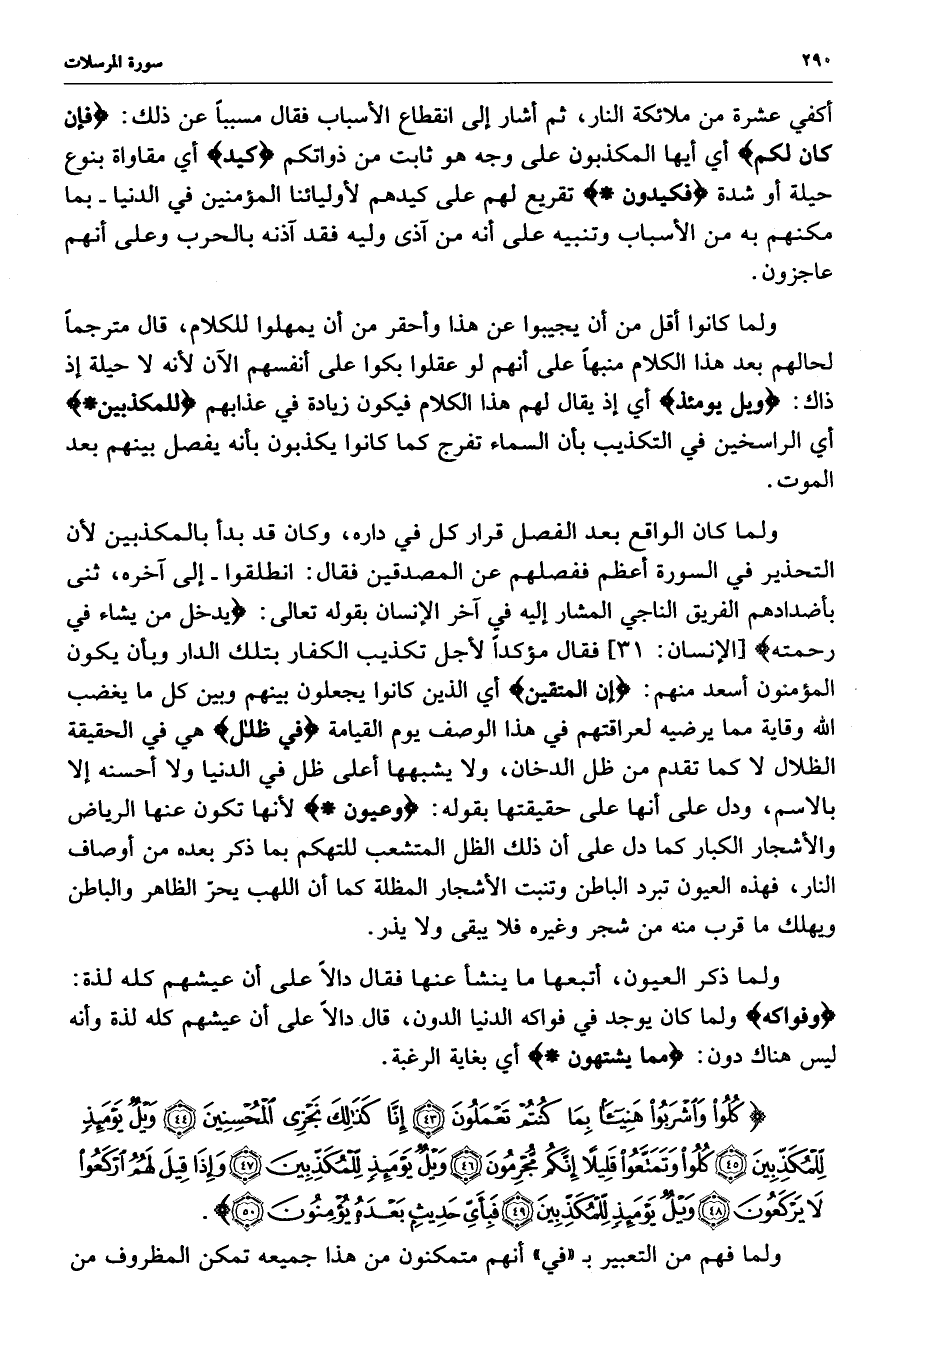 ٢٩٠ سورة المرسلات
أكفي عشرة من ملائكة النار، ثم أشار إلى انقطاع الأسباب فقال مسبباً عن ذلك: ﴿فإن
كان لكم﴾ أي أيها المكذبون على وجه هو ثابت من ذواتكم ﴿كيد﴾ أي مقاواة بنوع
حيلة أو شدة ﴿فكيدون *﴾ تقريع لهم على كيدهم لأوليائنا المؤمنين في الدنيا ـ بما
مكنهم به من الأسباب وتنبيه على أنه من آذى وليه فقد آذنه بالحرب وعلى أنهم
عاجزون.
ولما كانوا أقل من أن يجيبوا عن هذا وأحقر من أن يمهلوا للكلام، قال مترجماً
لحالهم بعد هذا الكلام منبهاً على أنهم لو عقلوا بكوا على أنفسهم الآن لأنه لا حيلة إذ
ذاك: ﴿ويل يومئذ﴾ أي إذ يقال لهم هذا الكلام فيكون زيادة في عذابهم ﴿للمكذبين*﴾
أي الراسخين في التكذيب بأن السماء تفرج كما كانوا يكذبون بأنه يفصل بينهم بعد
الموت.
ولما كان الواقع بعد الفصل قرار كل في داره، وكان قد بدأ بالمكذبين لأن
التحذير في السورة أعظم ففصلهم عن المصدقين فقال: انطلقوا ـ إلى آخره، ثنى
بأضدادهم الفريق الناجي المشار إليه في آخر الإنسان بقوله تعالى: ﴿يدخل من يشاء في
رحمته﴾ [الإنسان: ٣١] فقال مؤكداً لأجل تكذيب الكفار بتلك الدار وبأن يكون
المؤمنون أسعد منهم: ﴿إن المتقين﴾ أي الذين كانوا يجعلون بينهم وبين كل ما يغضب
الله وقاية مما يرضيه لعراقتهم في هذا الوصف يوم القيامة ﴿في ظلٰل﴾ هي في الحقيقة
الظلال لا كما تقدم من ظل الدخان، ولا يشبهها أعلى ظل في الدنيا ولا أحسنه إلا
بالاسم، ودل على أنها على حقيقتها بقوله: ﴿وعيون *﴾ لأنها تكون عنها الرياض
والأشجار الكبار كما دل على أن ذلك الظل المتشعب للتهكم بما ذكر بعده من أوصاف
النار، فهذه العيون تبرد الباطن وتنبت الأشجار المظلة كما أن اللهب يحرّ الظاهر والباطن
ويهلك ما قرب منه من شجر وغيره فلا يبقى ولا يذر.
ولما ذكر العيون، أتبعها ما ينشأ عنها فقال دالاً على أن عيشهم كله لذة:
﴿وفواكه﴾ ولما كان يوجد في فواكه الدنيا الدون، قال دالاً على أن عيشهم كله لذة وأنه
ليس هناك دون: ﴿مما يشتهون *﴾ أي بغاية الرغبة.
﴿ كُلُوا۟ وَٱشْرَبُوا۟ هَنِيٓـًٔۢا بِمَا كُنتُمْ تَعْمَلُونَ ٤٣ إِنَّا كَذَٰلِكَ نَجْزِى ٱلْمُحْسِنِينَ ٤٤ وَيْلٌ يَوْمَئِذٍ
لِّلْمُكَذِّبِينَ ٤٥ كُلُوا۟ وَتَمَتَّعُوا۟ قَلِيلًا إِنَّكُم مُّجْرِمُونَ ٤٦ وَيْلٌ يَوْمَئِذٍ لِّلْمُكَذِّبِينَ ٤٧ وَإِذَا قِيلَ لَهُمُ ٱرْكَعُوا۟
لَا يَرْكَعُونَ ٤٨ وَيْلٌ يَوْمَئِذٍ لِّلْمُكَذِّبِينَ ٤٩ فَبِأَىِّ حَدِيثٍۭ بَعْدَهُۥ يُؤْمِنُونَ ٥٠﴾.
ولما فهم من التعبير بـ «في» أنهم متمكنون من هذا جميعه تمكن المظروف من